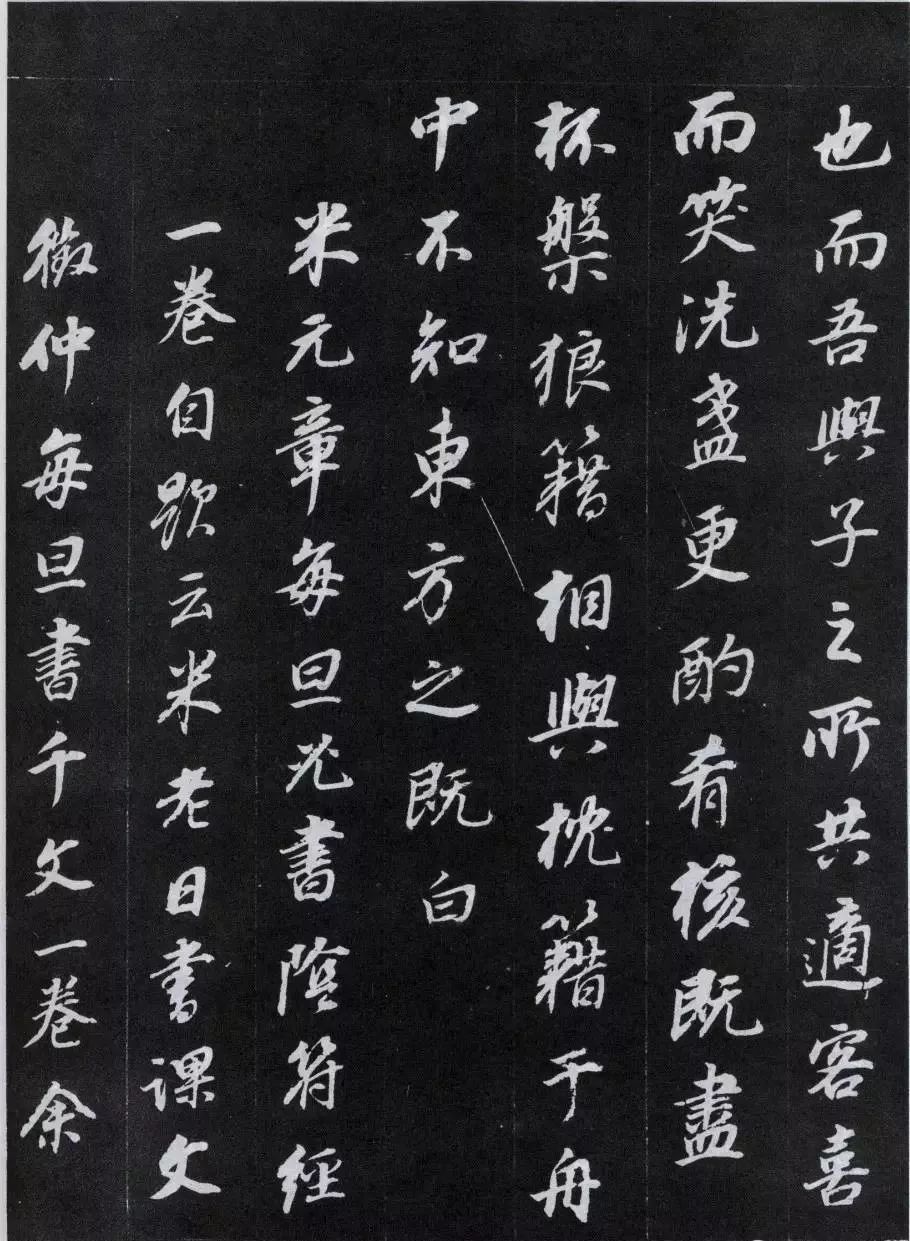 也而吾與子之所共適客喜
而笑洗盞更酌肴核既盡
杯盤狼籍相與枕籍于舟
中不知東方之既白
米元章每旦必書陰符經
一卷自題云米老日書課文
徵仲每旦書千文一卷余